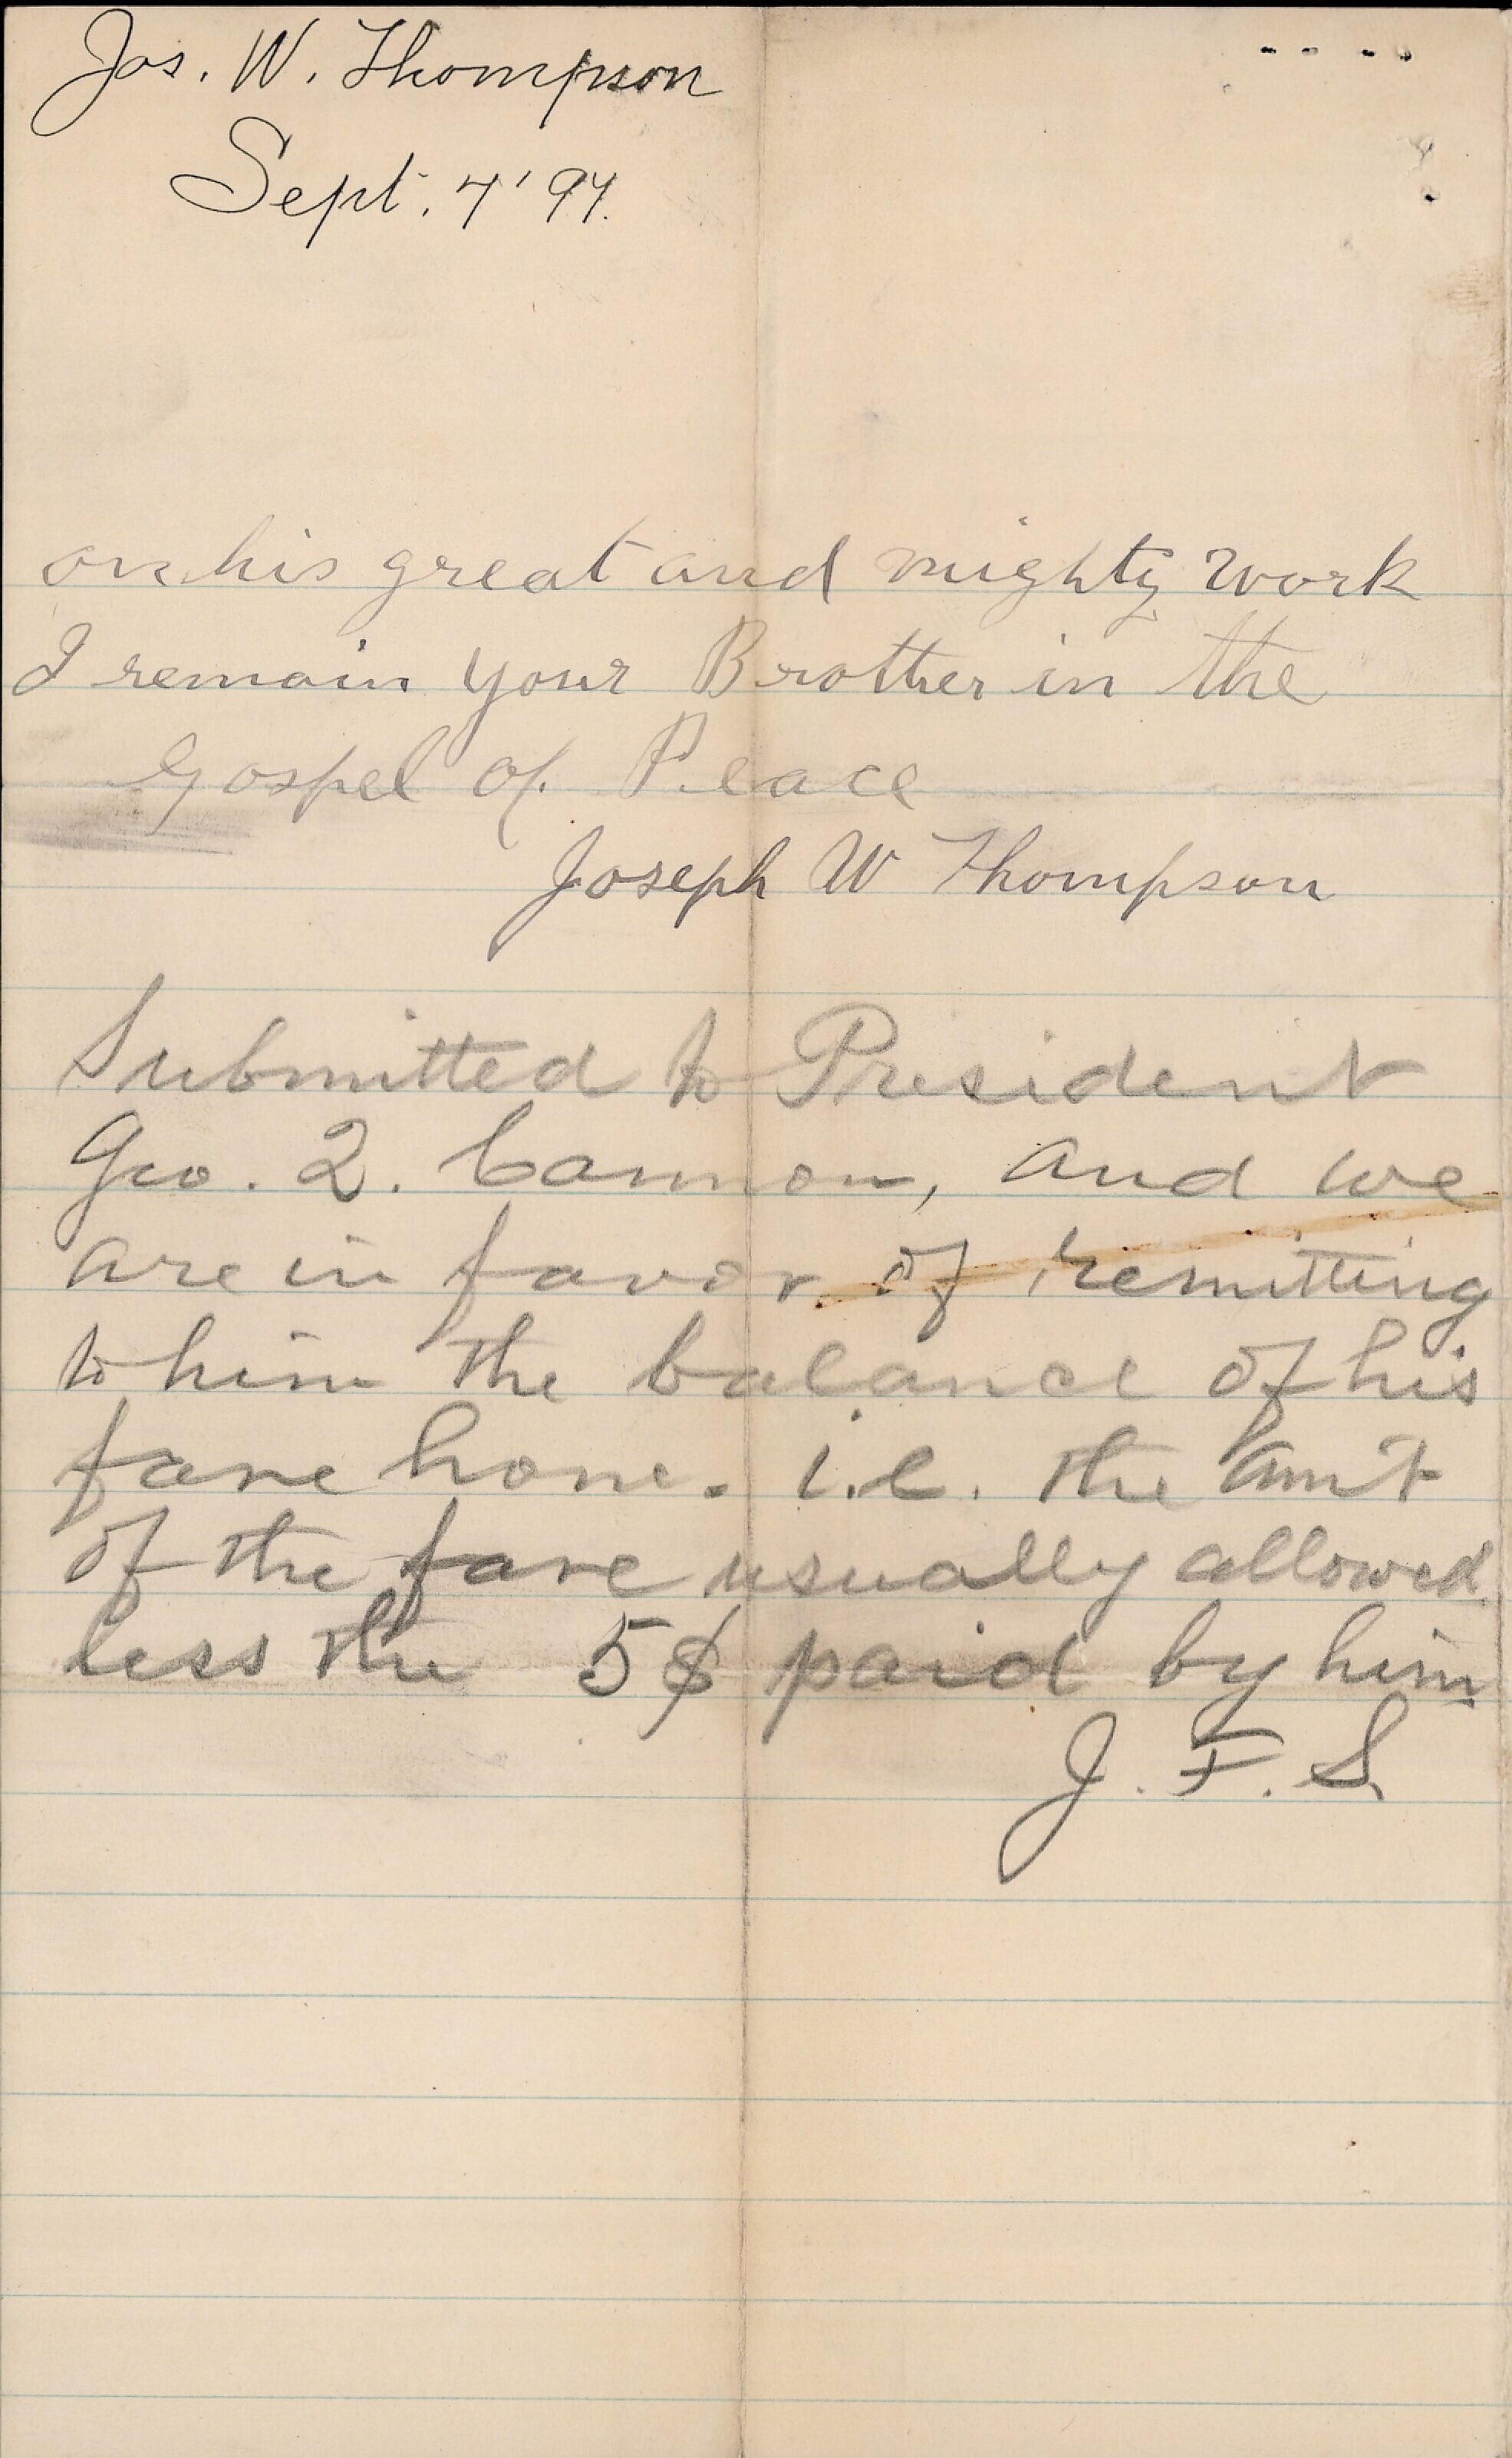 Jos. W. Thompson
Sept. 7' 97.
on his great and mighty work
I remain your Brother in the
Gospel of Peace
Joseph W Thompson
Submitted to President
Geo. Q. Cannon, and we
are in favor of remitting
to him the balance of his
fare home. i.e. the am't
of the fare usually allowed
less the 5$ paid by him
J. F. S.